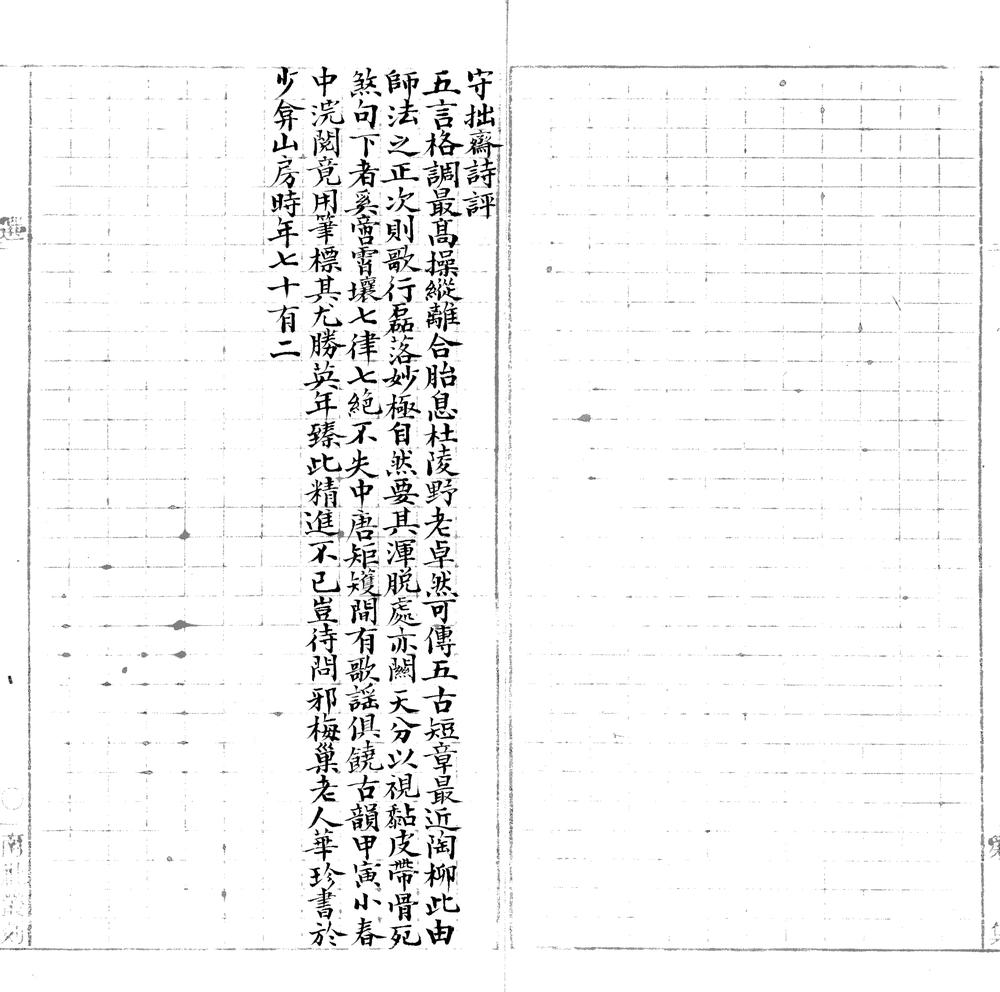 守拙齋詩評
五言格調最高操縱離合胎息杜陵野老卓然可傳五古短章最近陶柳此由
師法之正次則歌行磊落妙極自然要其渾脫處亦關天分以視黏皮帶骨死
煞句下者奚啻霄壤七律七絕不失中唐矩矱間有歌謠俱饒古韻甲寅小春
中浣閱竟用筆標其尤勝英年臻此精進不已豈待問邪梅巢老人華珍書於
少弇山房時年七十有二
選